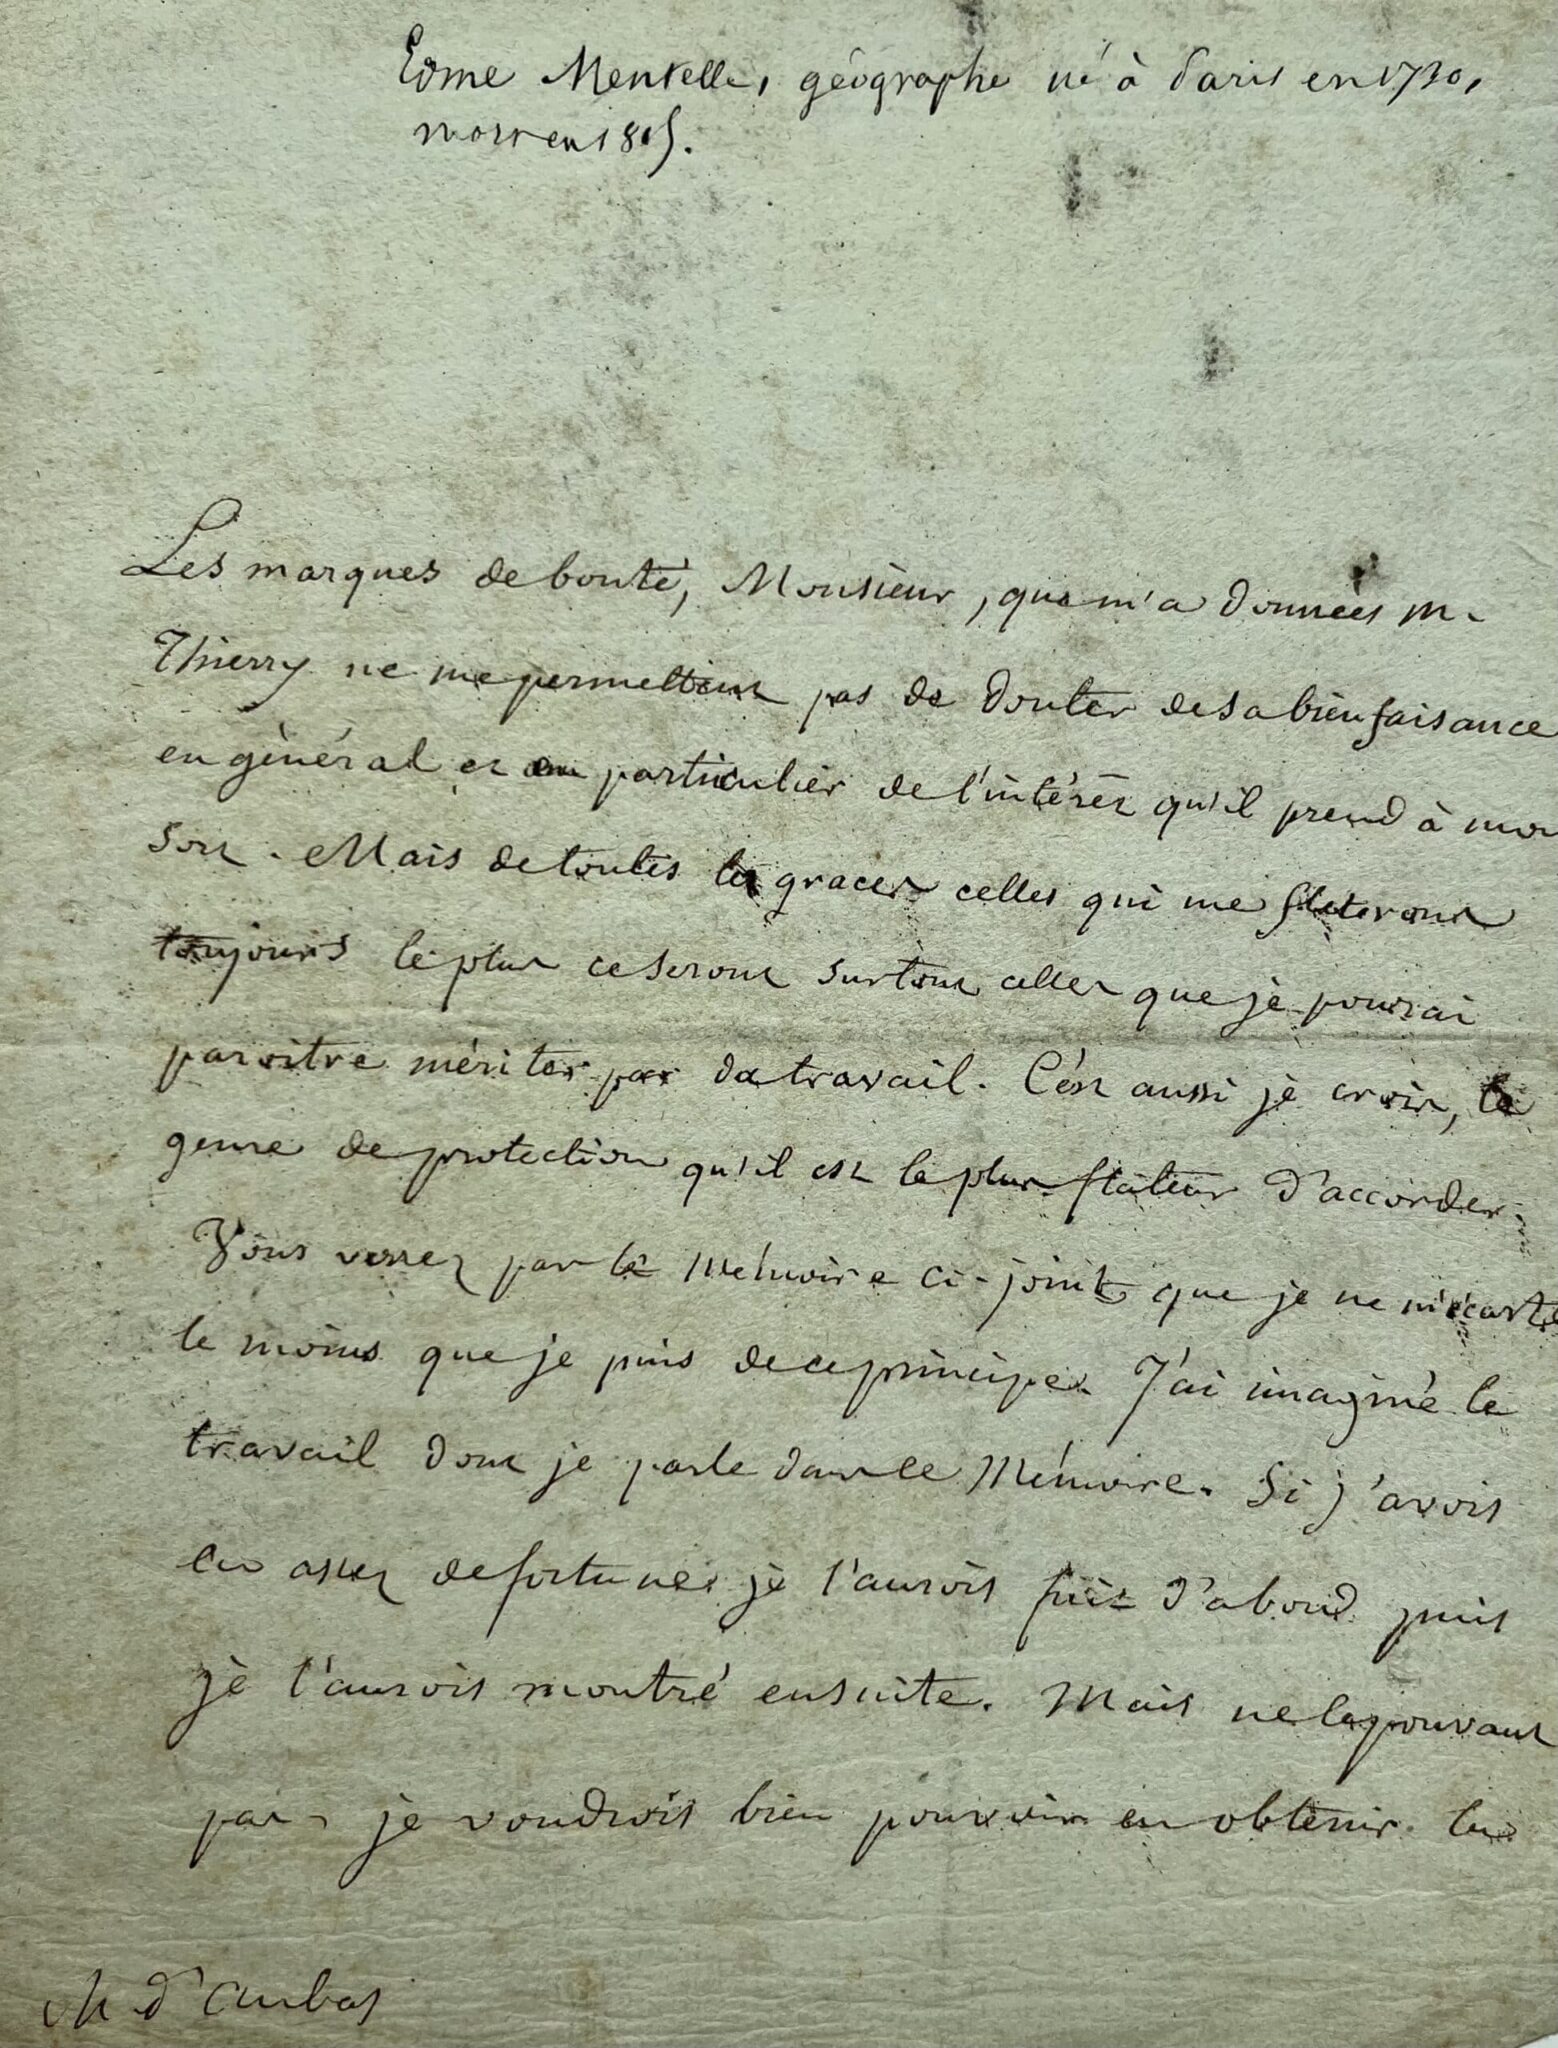 Edme Mentelle, géographe né à Paris en 1730,
mort en 1815.
Les marques de bonté, Monsieur, que m'a données M.
Thierry ne me permettent pas de douter de sa bienfaisance
en général et en particulier de l'intérêt qu'il prend à mon
sort. Mais de toutes les graces celles qui me flateront
toujours le plus ce seront surtout celles que je pourai
paroitre mériter par du travail. C'est aussi je crois, le
genre de protection qu'il est le plus flateur d'accorder.
Vous verrez par le Mémoire ci-joint que je ne m'écarte
le moins que je puis de ce principe. J'ai imaginé le
travail dont je parle dans ce Mémoire. Si j'avois
eu assez de fortune je l'aurois fait d'abord puis
je l'aurois montré ensuite. Mais ne le pouvant
pas, je voudrois bien pouvoir en obtenir les
M d'Aubas